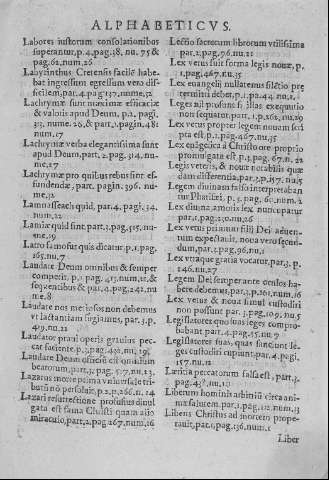 ALPHABETICVS.
Labores iustorum consolationibus
superantur, p.4. pag.38. nu. 75 &
pag.62, num.26
Labyrinthus Cretensis facilè habe-
bat ingressum egressum vero dif-
ficilem par.4. pag.157, nume,52
Lachrymæ sunt maximæ efficaciæ
& valoris apud Deum, p.2, pagi,
num.17
Lachrymæ verba elegantissima sunt
apud Deum, part.2, pag.314, nu-
me,27
Lachrymæ pro quibus rebus sint ef-
fundendæ, part. pagin. 396. nu-
me,32
Lamasseach quid, par.4. pagi, 34.
num,22
Lamiæ quid sint part.3, pag,515, nu-
me,19
Latro famosus quis dicatur p.1, pag,
165, nu,7
Laudare Deum omnibus & semper
competit, p.1, pag, 415, num,11, &
sequentibus & par.4, pag,242, nu
me,8
Laudare nos met ipsos non debemus
vt lactantium firmianus, par.3, p,
419, nu,21
Laudator praui operis grauius pec-
cat faciente, p.3, pag,432, nu, 19,
Laudare Deum officiū est omnium
beatorum, part,3, pag, 517, nu,23,
Lazarus morte prima vniuersale tri-
butū nō persoluit, p,2, p,266, n,14
Lazari resurrectione profusius diuul
gata est fama Christi quam alio
miraculo, part,2, pag,267, num,16
Lectio sacrorum librorum vtilissima
par.2, pag,76, nu,21
Lex vetus fuit forma legis nouæ, p.
1, pag,467, nu,35
Lex euangelij nullatenus silētio præ
termitti debet, p.1, pa,44, nu,1,
Leges nil prosunt si illas exequutio
non sequatur, part, 1, p,161, nu,20
Lex vetus propter legem nouam scri
pta est p.1, pag,467, nu,35
Lex euāgelica à Christo ore proprio
promulgata est p,3, pag, 67, n, 22
Legis veteris, & nouæ notabilis quæ
dam differentia, par,3, p,157, nu,5
Legem diuinam falso interpretaban
tur Pharisæi, p,3, pag,60, num,2
Lex diuina amoris lex nuncupatur
par,2, pag,230, nu,26
Lex vetus primum filij Dei aduen-
tum expectauit, noua vero secun-
dum, par,3, pag,96, nu,1
Lex vtraque gratia vocatur, par,3, p,
146, nu,27
Legem Dei semper ante oculos habe-
re debemus, par.3, p,161, num,16
Lex vetus & noua simul custodiri
non possunt par.3, pag,109, nu,5
Legislatores quo suas leges compro-
babant, part,4, pag,15, nu,9
Legislatores suas, quas sunciunt le-
ges custodiri cupiunt, par,4, pagi,
157, nu,11
Lætitia peccatorum falsa est, part,3,
pag,43, nu,10
Liberum hominis arbitriū circa ani-
mæ salutem, par,1, pag,112, num,13
Libens Christus ad mortem prope-
rauit, par,1, pag,136, num,1
Liber